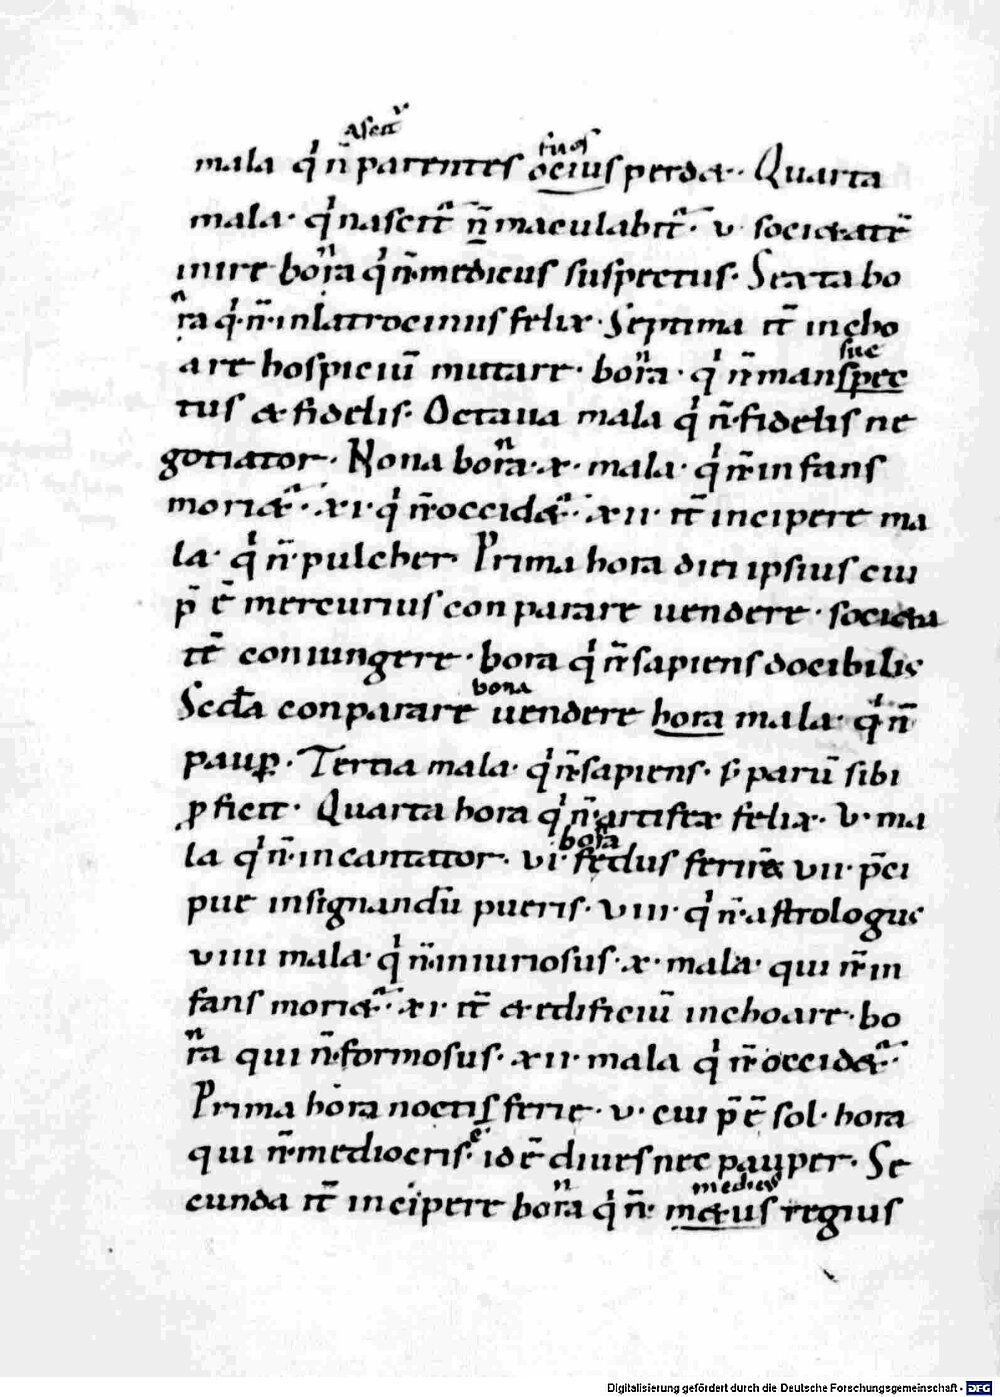 ascit᷑
tuos
mala q̇ n̄ parentes ocius perd&. Quarta
mala. q̇ nascit᷑ n̄ maculabit᷑. v. soci&atē
inire bora q̇ n̄. medicus suspectus. Sexta bo
ra q̇. n̄. inlatrocinus felix. Septima it̄ incho
are hospiciū mutare. bora. q̇ n̄ manspec
sue
tus & fidelis. Octaua mala q̇ n̄. fidelis ne
gotiator. Nona bora. x. mala. q̇ n̄ infans
mori&᷑. xi. q̇ n̄ occid&᷑. xii. it̄ incipere ma
la. q̇ n̄. pulcher. Prima hora diei ipsius cui
p̄ ē mercurius conparare uendere. soci&a
tē coniungere. bora q̇ n̄ sapiens docibilis
bona
Secđa conparare uendere hora mala. q̇ n̄
paup̲. Tertia mala. q̇ n̄ sapiens. s; parū sibi
ꝓficit. Quarta hora q̇ n̄. artifex felix. V. ma
bora
la q̇ n̄. incantator. vi. fedus ferire vii. p̄ci
pue insignandū pueris. viii. q̇ n̄. astrologus
viiii mala. q̇ n̄. iniuriosus. x. mala. qui n̄ in
fans mori&᷑. xi. it̄ &edificiū inchoare. bo
ra qui n̄. formosus. xii. mala q̇ n̄ occid&᷑.
Prima hora noctis ferie. v. cui p̄ ē sol. hora
qui n̄. mediocris. id ē diues nec pauper. Se
medic
cunda it̄ incipere bora q̇ n̄. m&us regius
Digitalisierung gefördert durch die Deutsche Forschungsgemeinschaft - DFG